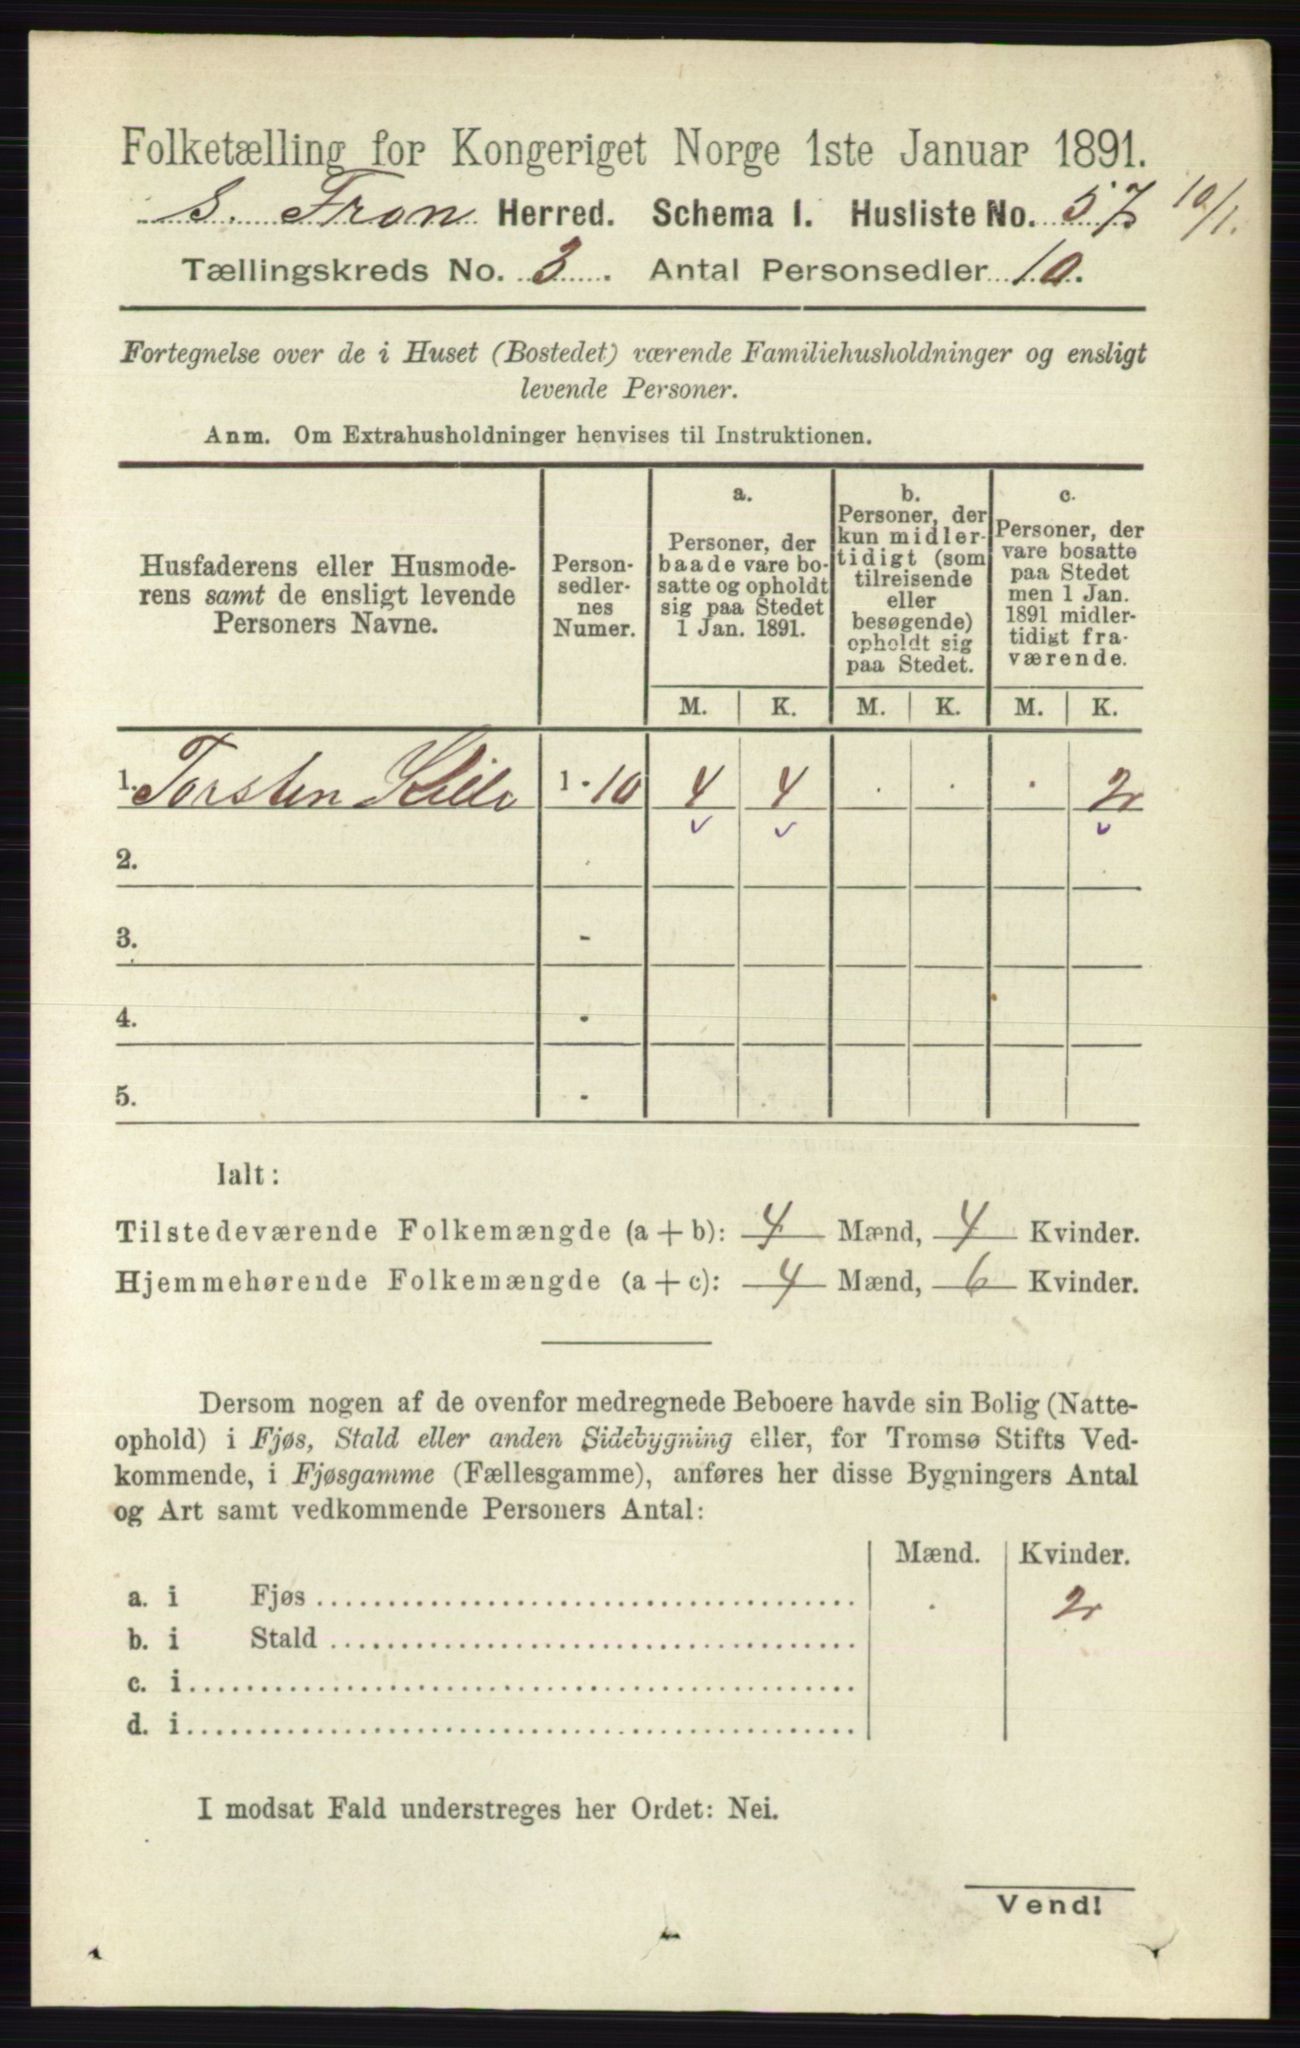 Folketælling for Kongeriget Norge 1ste Januar 1891.
S. Fron Herred. Schema 1. Husliste No. 57 10/1.
Tællingskreds No. 3. Antal Personsedler 10.
Fortegnelse over de i Huset (Bostedet) værende Familiehusholdninger og ensligt
levende Personer.
Anm. Om Extrahusholdninger henvises til Instruktionen.
Husfaderens eller Husmode-
rens samt de ensligt levende
Personers Navne.
Person-
sedler-
nes
Numer.
a.
Personer, der
baade vare bo-
satte og opholdt
sig paa Stedet
1 Jan. 1891.
b.
Personer, der
kun midler-
tidigt (som
tilreisende
eller
besøgende)
opholdt sig
paa Stedet.
c.
Personer, der
vare bosatte
paa Stedet
men 1 Jan.
1891 midler-
tidigt fra-
værende.
M. K. M. K. M. K.
1. Torsten 1 - 10 4 4 . . . 2
2.
3. -
4. -
5. -
Ialt:
Tilstedeværende Folkemængde (a + b): 4 Mænd, 4 Kvinder.
Hjemmehørende Folkemængde (a + c): 4 Mænd, 6 Kvinder.
Dersom nogen af de ovenfor medregnede Beboere havde sin Bolig (Natte-
ophold) i Fjøs, Stald eller anden Sidebygning eller, for Tromsø Stifts Ved-
kommende, i Fjøsgamme (Fællesgamme), anføres her disse Bygningers Antal
og Art samt vedkommende Personers Antal:
Mænd. Kvinder.
a. i Fjøs . 2
b. i Stald
c. i
d. i
I modsat Fald understreges her Ordet: Nei.
Vend!